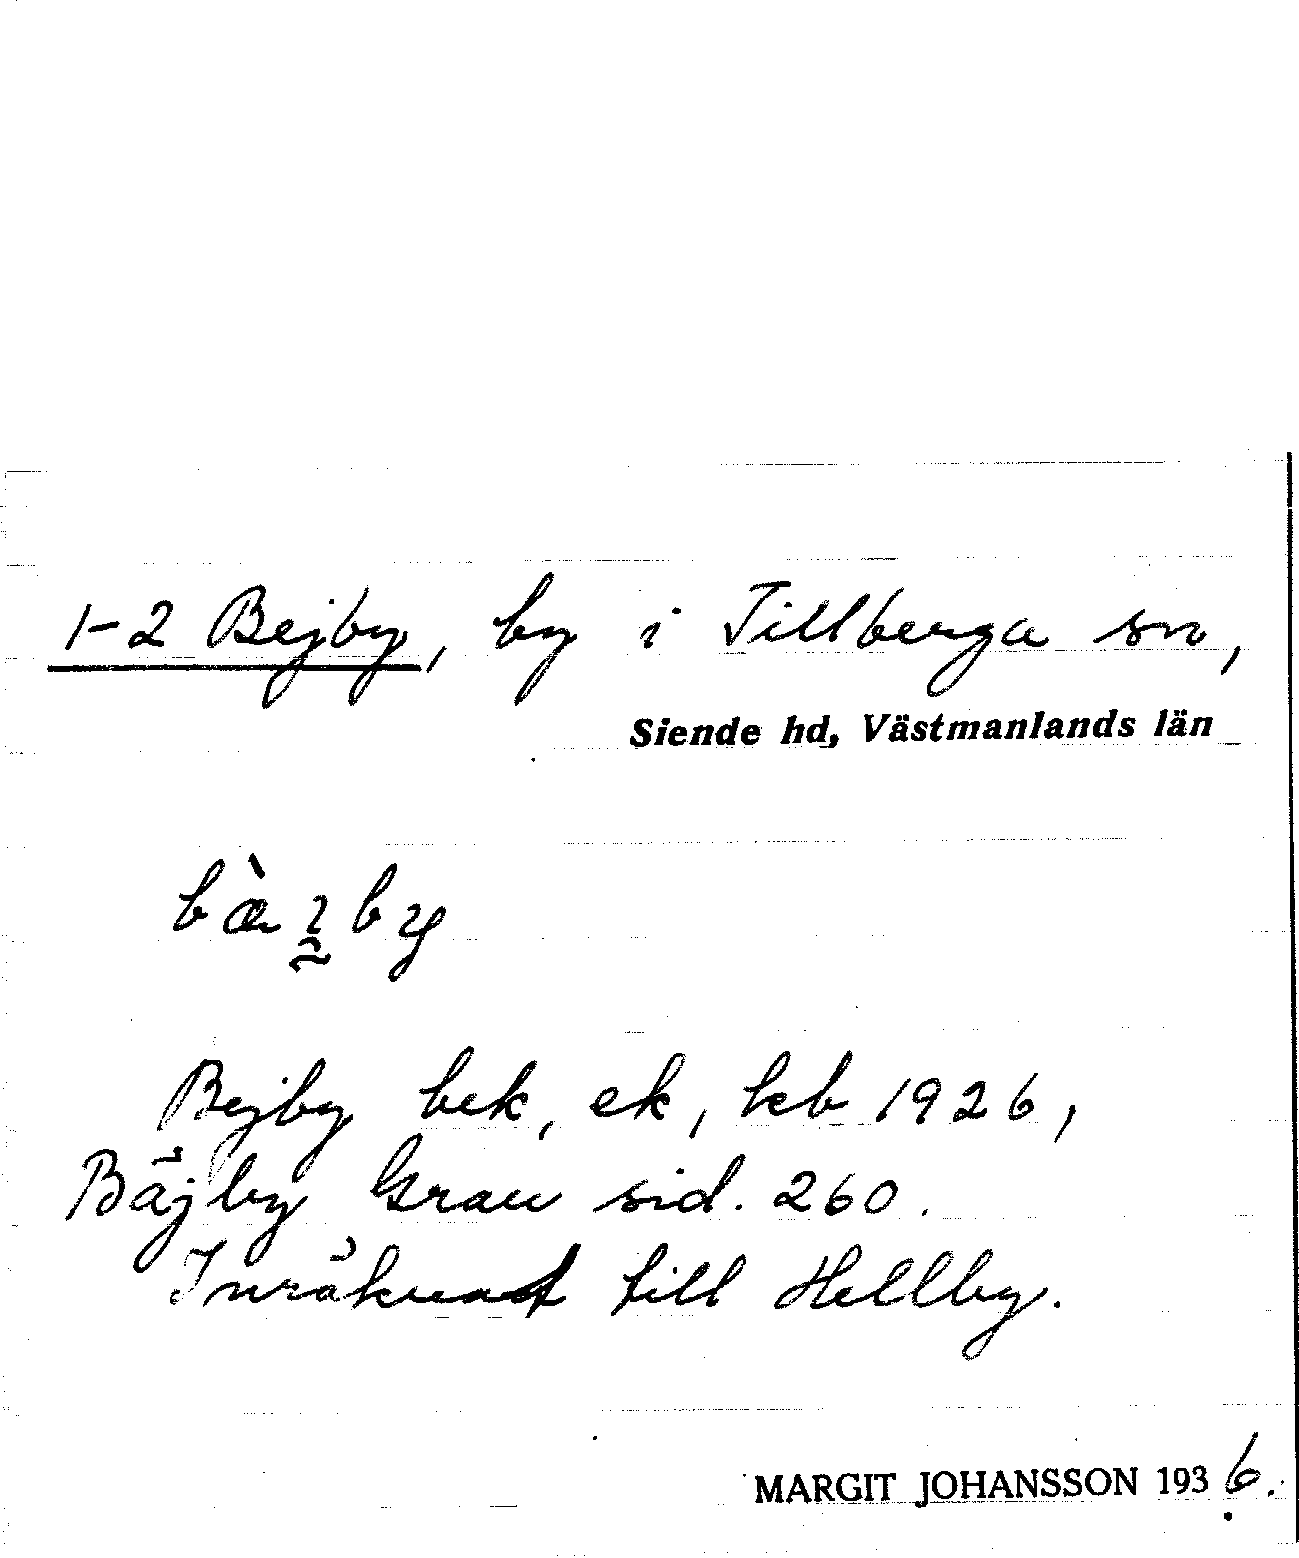 1-2 Bejby, by i Tillberga sn,
Siende hd, Västmanlands län
bæ̀ı̰by
Bejby bek, ek, kb 1926,
Bäjby Grau sid. 260.
Inräknat till Hellby.
MARGIT JOHANSSON 1936.